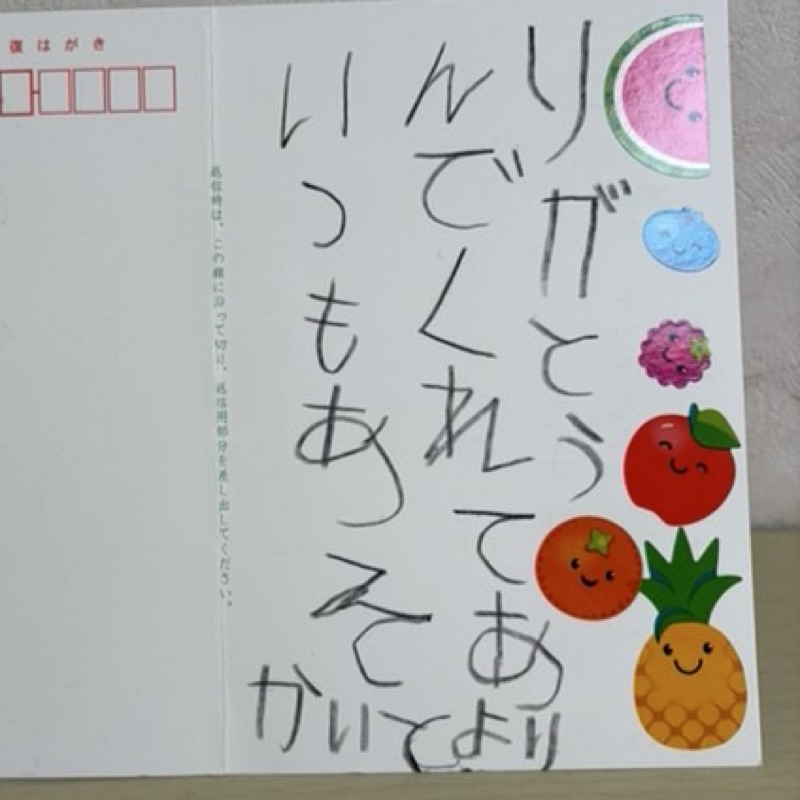 復はがき
返信時は、この線に沿って切り、返信用部分を差し出してください。
いつもあそ
んでくれてあ
りがとう
かいとより